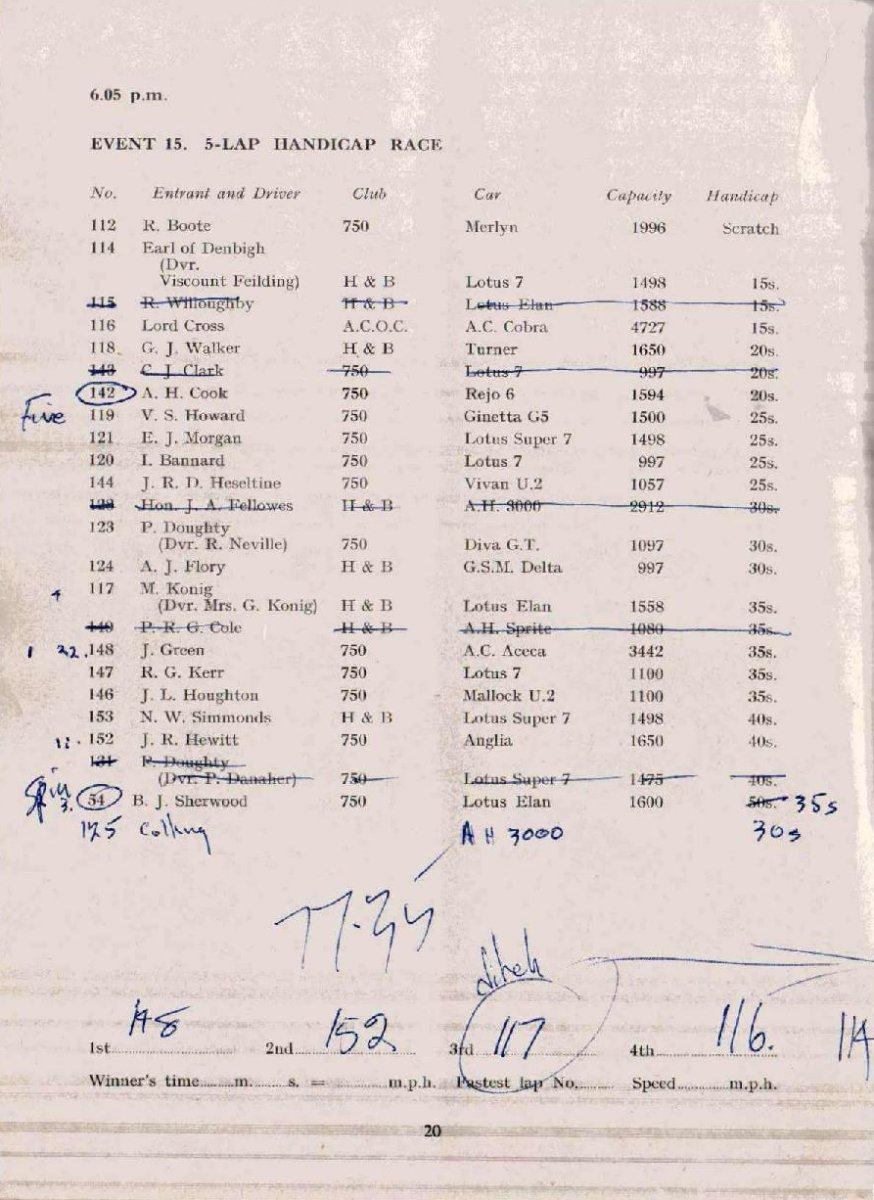 6.05 p.m.
EVENT 15. 5-LAP HANDICAP RACE
No. Entrant and Driver Club Car Capacity Handicap
112 R. Boote 750 Merlyn 1996 Scratch
114 Earl of Denbigh
(Dvr.
Viscount Feilding) H & B Lotus 7 1498 15s.
115 R. Willoughby H & B Lotus Elan 1588 15s.
116 Lord Cross A.C.O.C. A.C. Cobra 4727 15s.
118 G. J. Walker H & B Turner 1650 20s.
143 C. J. Clark 750 Lotus 7 997 20s.
142 A. H. Cook 750 Rejo 6 1594 20s.
Five 119 V. S. Howard 750 Ginetta G5 1500 25s.
121 E. J. Morgan 750 Lotus Super 7 1498 25s.
120 I. Bannard 750 Lotus 7 997 25s.
144 J. R. D. Heseltine 750 Vivan U.2 1057 25s.
Hon. J. A. Fellowes H & B A.H. 3000 2912 30s.
123 P. Doughty
(Dvr. R. Neville) 750 Diva G.T. 1097 30s.
124 A. J. Flory H & B G.S.M. Delta 997 30s.
117 M. Konig
4 (Dvr. Mrs. G. Konig) H & B Lotus Elan 1558 35s.
P. R. G. Cole H & B A.H. Sprite 1080 35s.
1 148 J. Green 750 A.C. Aceca 3442 35s.
147 R. G. Kerr 750 Lotus 7 1100 35s.
146 J. L. Houghton 750 Mallock U.2 1100 35s.
153 N. W. Simmonds H & B Lotus Super 7 1498 40s.
152 J. R. Hewitt 750 Anglia 1650 40s.
131 P. Doughty
(Dvr. P. Danaher) 750 Lotus Super 7 1475 40s.
Spin 3. 54 B. J. Sherwood 750 Lotus Elan 1600 50s. 35s
125 AH 3000 30s
ditch
1st 148 2nd 152 3rd 117 4th 116. 114
Winner's time m. s. = m.p.h. Fastest lap No. Speed m.p.h.
20